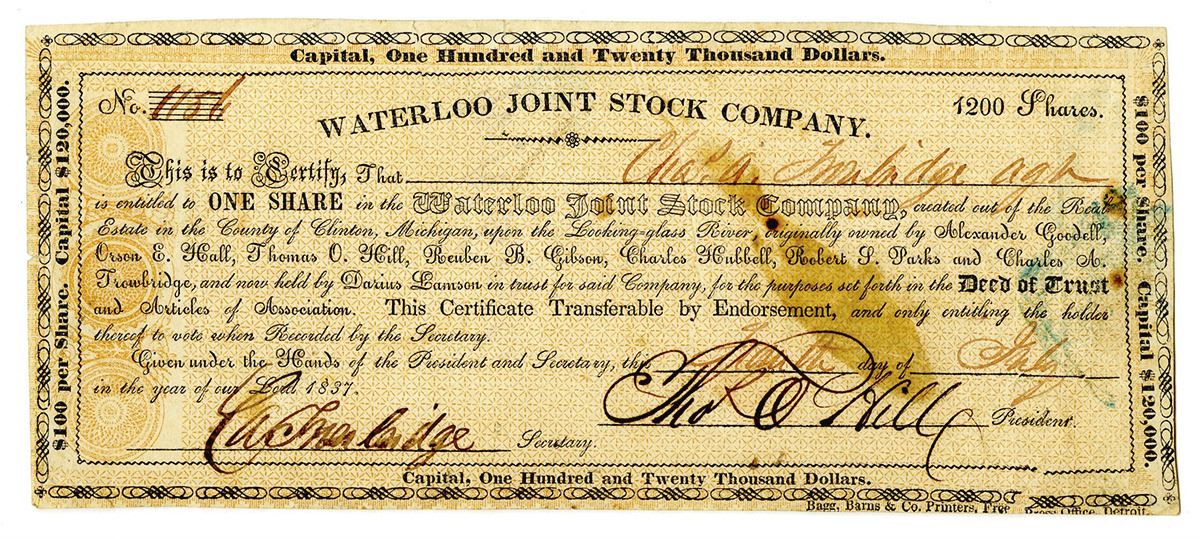 Capital, One Hundred and Twenty Thousand Dollars.
No. 1156
WATERLOO JOINT STOCK COMPANY.
1200 Shares.
This is to Certify, That Chas. A. Trowbridge agt
is entitled to ONE SHARE in the Waterloo Joint Stock Company, created out of the Real
Estate in the County of Clinton, Michigan, upon the Looking=glass River, originally owned by Alexander Goodell,
Orson E. Hall, Thomas O. Hill, Reuben B. Gibson, Charles Hubbell, Robert S. Parks and Charles A.
Trowbridge, and now held by Darius Lamson in trust for said Company, for the purposes set forth in the Deed of Trust
and Articles of Association. This Certificate Transferable by Endorsement, and only entitling the holder
thereof to vote when Recorded by the Secretary.
Given under the Hands of the President and Secretary, this day of July
in the year of our Lord 1837.
Tho O Hill President.
C A Trowbridge Secretary.
Capital, One Hundred and Twenty Thousand Dollars.
Bagg, Barns & Co. Printers, Free Press Office, Detroit.
$100 per Share. Capital $120,000.
$100 per Share. Capital $120,000.